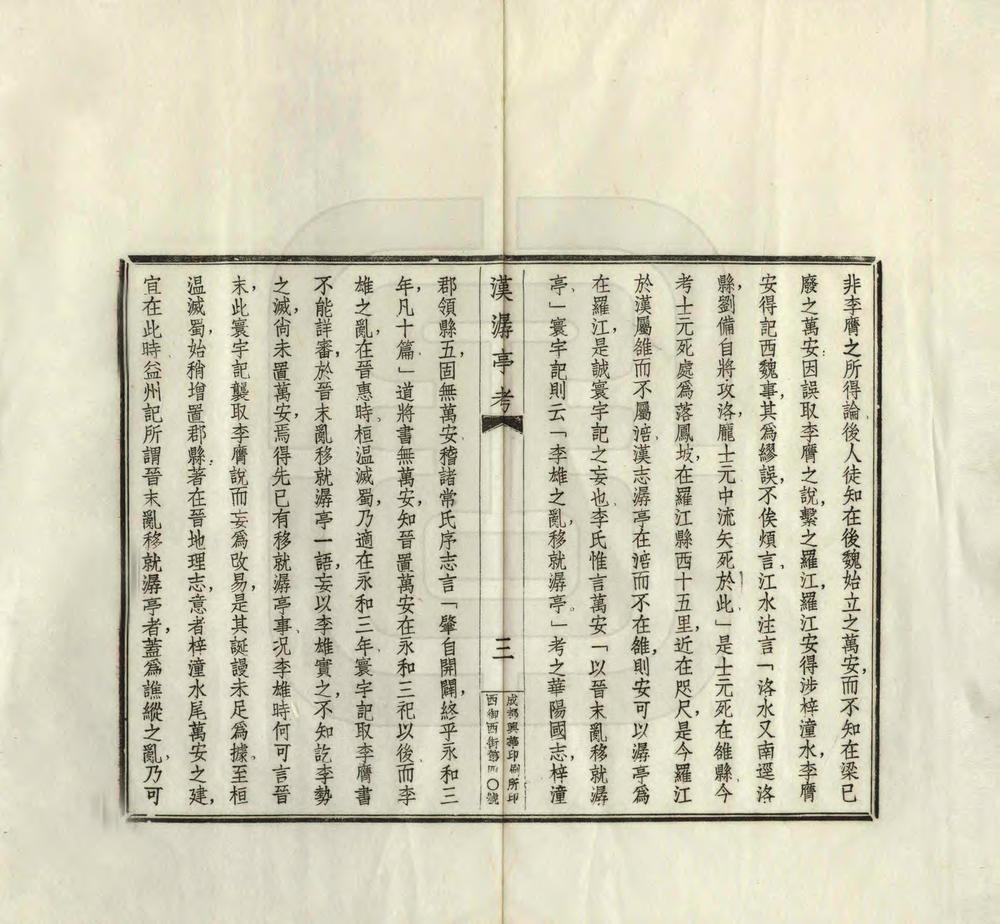 非李膺之所得論、後人徒知在後魏始立之萬安、而不知在梁已
廢之萬安因誤取李膺之說、繫之羅江、羅江安得涉梓潼水、李膺
安得記西魏事、其爲繆誤、不俟煩言、江水注言「洛水又南逕洛
縣、劉備自將攻洛、龐士元中流矢死於此、」是士元死在雒縣、今
考士元死處爲落鳳坡、在羅江縣西十五里、近在咫尺、是今羅江
於漢屬雒而不屬涪、漢志潺亭在涪而不在雒、則安可以潺亭爲
在羅江、是誠寰宇記之妄也、李氏惟言萬安「以晉末亂移就潺
亭、」寰宇記則云「李雄之亂、移就潺亭。」考之華陽國志、梓潼
漢潺亭考
三
成都興華印刷所印
西御西街第四〇號
郡領縣五、固無萬安、稽諸常氏序志言「肇自開闢、終乎永和三
年、凡十篇、」道將書無萬安、知晉置萬安在永和三祀以後、而李
雄之亂、在晉惠時、桓温滅蜀、乃適在永和三年、寰宇記取李膺書
不能詳審、於晉末亂移就潺亭一語、妄以李雄實之、不知訖李勢
之滅、尙未置萬安、焉得先已有移就潺亭事、况李雄時何可言晉
末、此寰宇記襲取李膺說而妄爲改易、是其誕謾未足爲據。至桓
温滅蜀、始稍增置郡縣、著在晉地理志、意者梓潼水尾萬安之建、
宜在此時、益州記所謂晉末亂移就潺亭者、蓋爲譙縱之亂、乃可